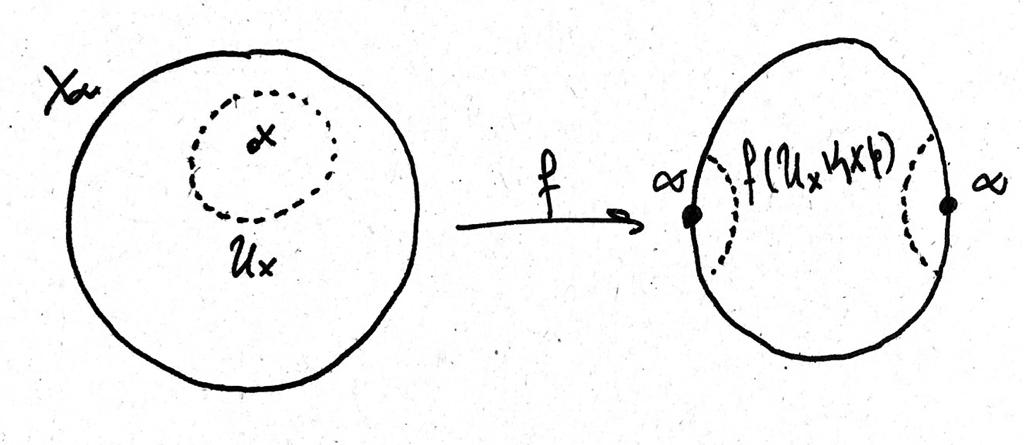 Xα
x
Uₓ
f
∝
f(Uₓ\{x})
∝